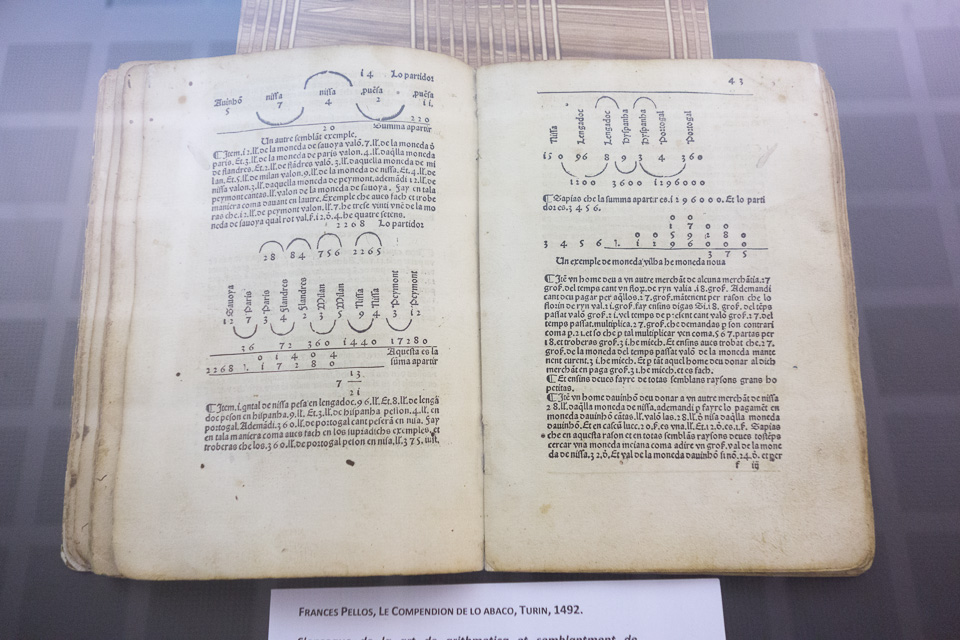 14 Lo partidor
nissa puesa puesa
Auinhō nissa
5 7 4 2 11.
220
20 Summa apartir
Un autre semblāt exemple.
¶Item.12.lf.de la moneda de sauoya valō.7.lf.de la moneda d
paris. Et.3.lf.de la moneda de paris valon.4.lf.daqlla moneda
de flandres. Et.2.lf.de flādres valō.3.lf.daquella moneda de mi
lan. Et.5.lf.de milan valon.9.lf.de la moneda de nissa. Et.4.lf.de
nissa valon.3.lf.daquella moneda de peymont, ademādi 12.lf.de
peymont cantas.lf.valon de la moneda de sauoya. Fay en tala
maniera coma dauant en lautre. Exemple che aues fach et trobe
ras che.12.lf.de peymont valon.lf.7.he trese vinti vne de la mo
neda de sauoya
2268 Lo partidor
28 84 756 2265
Sauoya Paris Paris Flandres Flandres Milan Milan Nissa Nissa Peymont Peymont
12 7 3 4 2 3 5 9 4 3 12
36 72 360 1440 17280
0 1 4 0 4 Aquesta es la
2268 1. 1 7 2 8 0 sūma apartir
7 13
21
¶Item.1.qntal de nissa pesa en lengadoc.96.lf. Et.8.lf.de lengā
doc peson en hispanha.9.lf. Et.3.lf.de hispanha pesson.4.lf.en
portogal. Ademādi.360.lf.de portogal cant peserā en nisa. Fay
en tala maniera coma aues fach en los supradichs exemples, et
troberas che los.360.lf.de portogal pesson en nisa.lf.375.iust.
43
Nissa Lengadoc Lengadoc Hyspanha Hyspanha Portogal Portogal
150 96 8 9 3 4 360
1200 3600 1296000
¶Sapias che la summa apartir es.1296000. Et lo parti
dor es.3456.
0 0
1 7 0 0
0 0 5 9 2 8 0
3 4 5 6 1. 1 2 9 6 0 0 0
3 7 5
Un exemple de moneda vilha he moneda noua
¶Itē vn home deu a vn autre merchāt de alcuna merchātia.27
gros.del temps cant vn flor.de ryn valia.18.gros. Ademandi
cant deu pagar per aqllos.27.gros.mātenent per rason che lo
florin de ryn val.21.gros. fay ensins digas Si.18. gros.del tēps
passat valō gros.21.vel temps de present cant valō gros.27.del
temps passat. multiplica.27.gros.che demandas p son contrari
coma p.21.et so che p tal multiplicar ven coma.567.partas per
18.et troberas gros.31.he miech. Et ensins aues trobat che.27.
gros.de la moneda del temps passat valō de la moneda mante
nent current.31.he miech. Et p tāt aquel home deu donar al dich
merchāt en paga gros.31.he miech.et es fach.
¶Et ensins deues fayre de totas semblans raysons grans ho
petitas.
¶Itē vn home dauinhō deu donar a vn autre merchāt de nissa
28.lf.daqlla moneda de nissa. ademandi p fayre lo pagamēt en
moneda dauinhō cātas.lf.valō las.28.lf.d nissa daqlla moneda
dauinhō.
che en aquesta rason et en totas semblās raysons deues tostēps
cercar vna moneda meiana coma adire vn gros.val de la mone
da de nissa.32.d. Et val de la moneda dauinhō sinō.24.d. et per
f iij
FRANCES PELLOS, LE COMPENDION DE LO ABACO, TURIN, 1492.